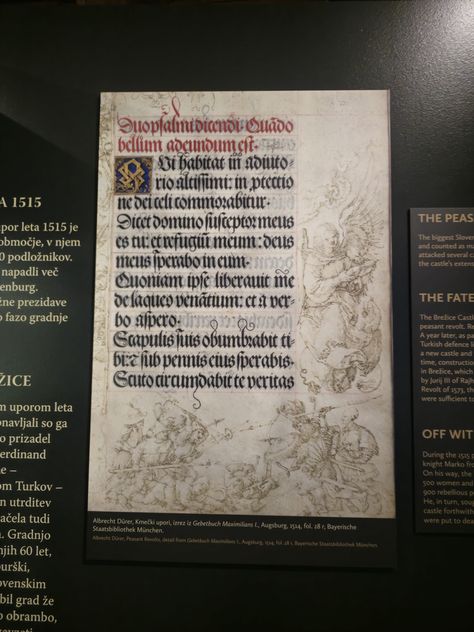 A 1515
por leta 1515 je
območje, v njem
0 podložnikov.
napadli več
enburg.
žne prezidave
o fazo gradnje
ŽICE
m uporom leta
onavljali so ga
o prizadel
erdinand
e –
om Turkov –
n utrditev
ačela tudi
a. Gradnjo
njih 60 let,
burški,
ovenskim
bil grad že
o obrambo,
Duo psalmi dicendi. Quādo
bellum adeundum est.
Qui habitat in adiuto-
rio altissimi: in ptectio
ne dei celi commorabitur.
Dicet domino susceptor meus
es tu: et refugiū meum: deus
meus sperabo in eum.
Quoniam ipse liberauit me
de laqueo venātium: et a ver
bo aspero.
Scapulis suis obumbrabit ti
bi: et sub pennis eius sperabis.
Scuto circumdabit te veritas
Albrecht Dürer, Kmečki upori, izrez iz Gebetbuch Maximilians I., Augsburg, 1514, fol. 28 r, Bayerische
Staatsbibliothek München.
Albrecht Dürer, Peasant Revolts, detail from Gebetbuch Maximilians I., Augsburg, 1514, fol. 28 r, Bayerische Staatsbibliothek München.
THE PEAS
The biggest Slove
and counted as ma
attacked several c
the castle's extens
THE FATE
The Brežice Castl
peasant revolt. Re
A year later, as pa
Turkish defence li
a new castle and
time, construction
in Brežice, which
by Jurij III of Rajh
Revolt of 1573, th
were sufficient to
OFF WIT
During the 1515 p
knight Marko fro
On his way, the
500 women and
900 rebellious p
He, in turn, soug
castle forthwith
were put to dea